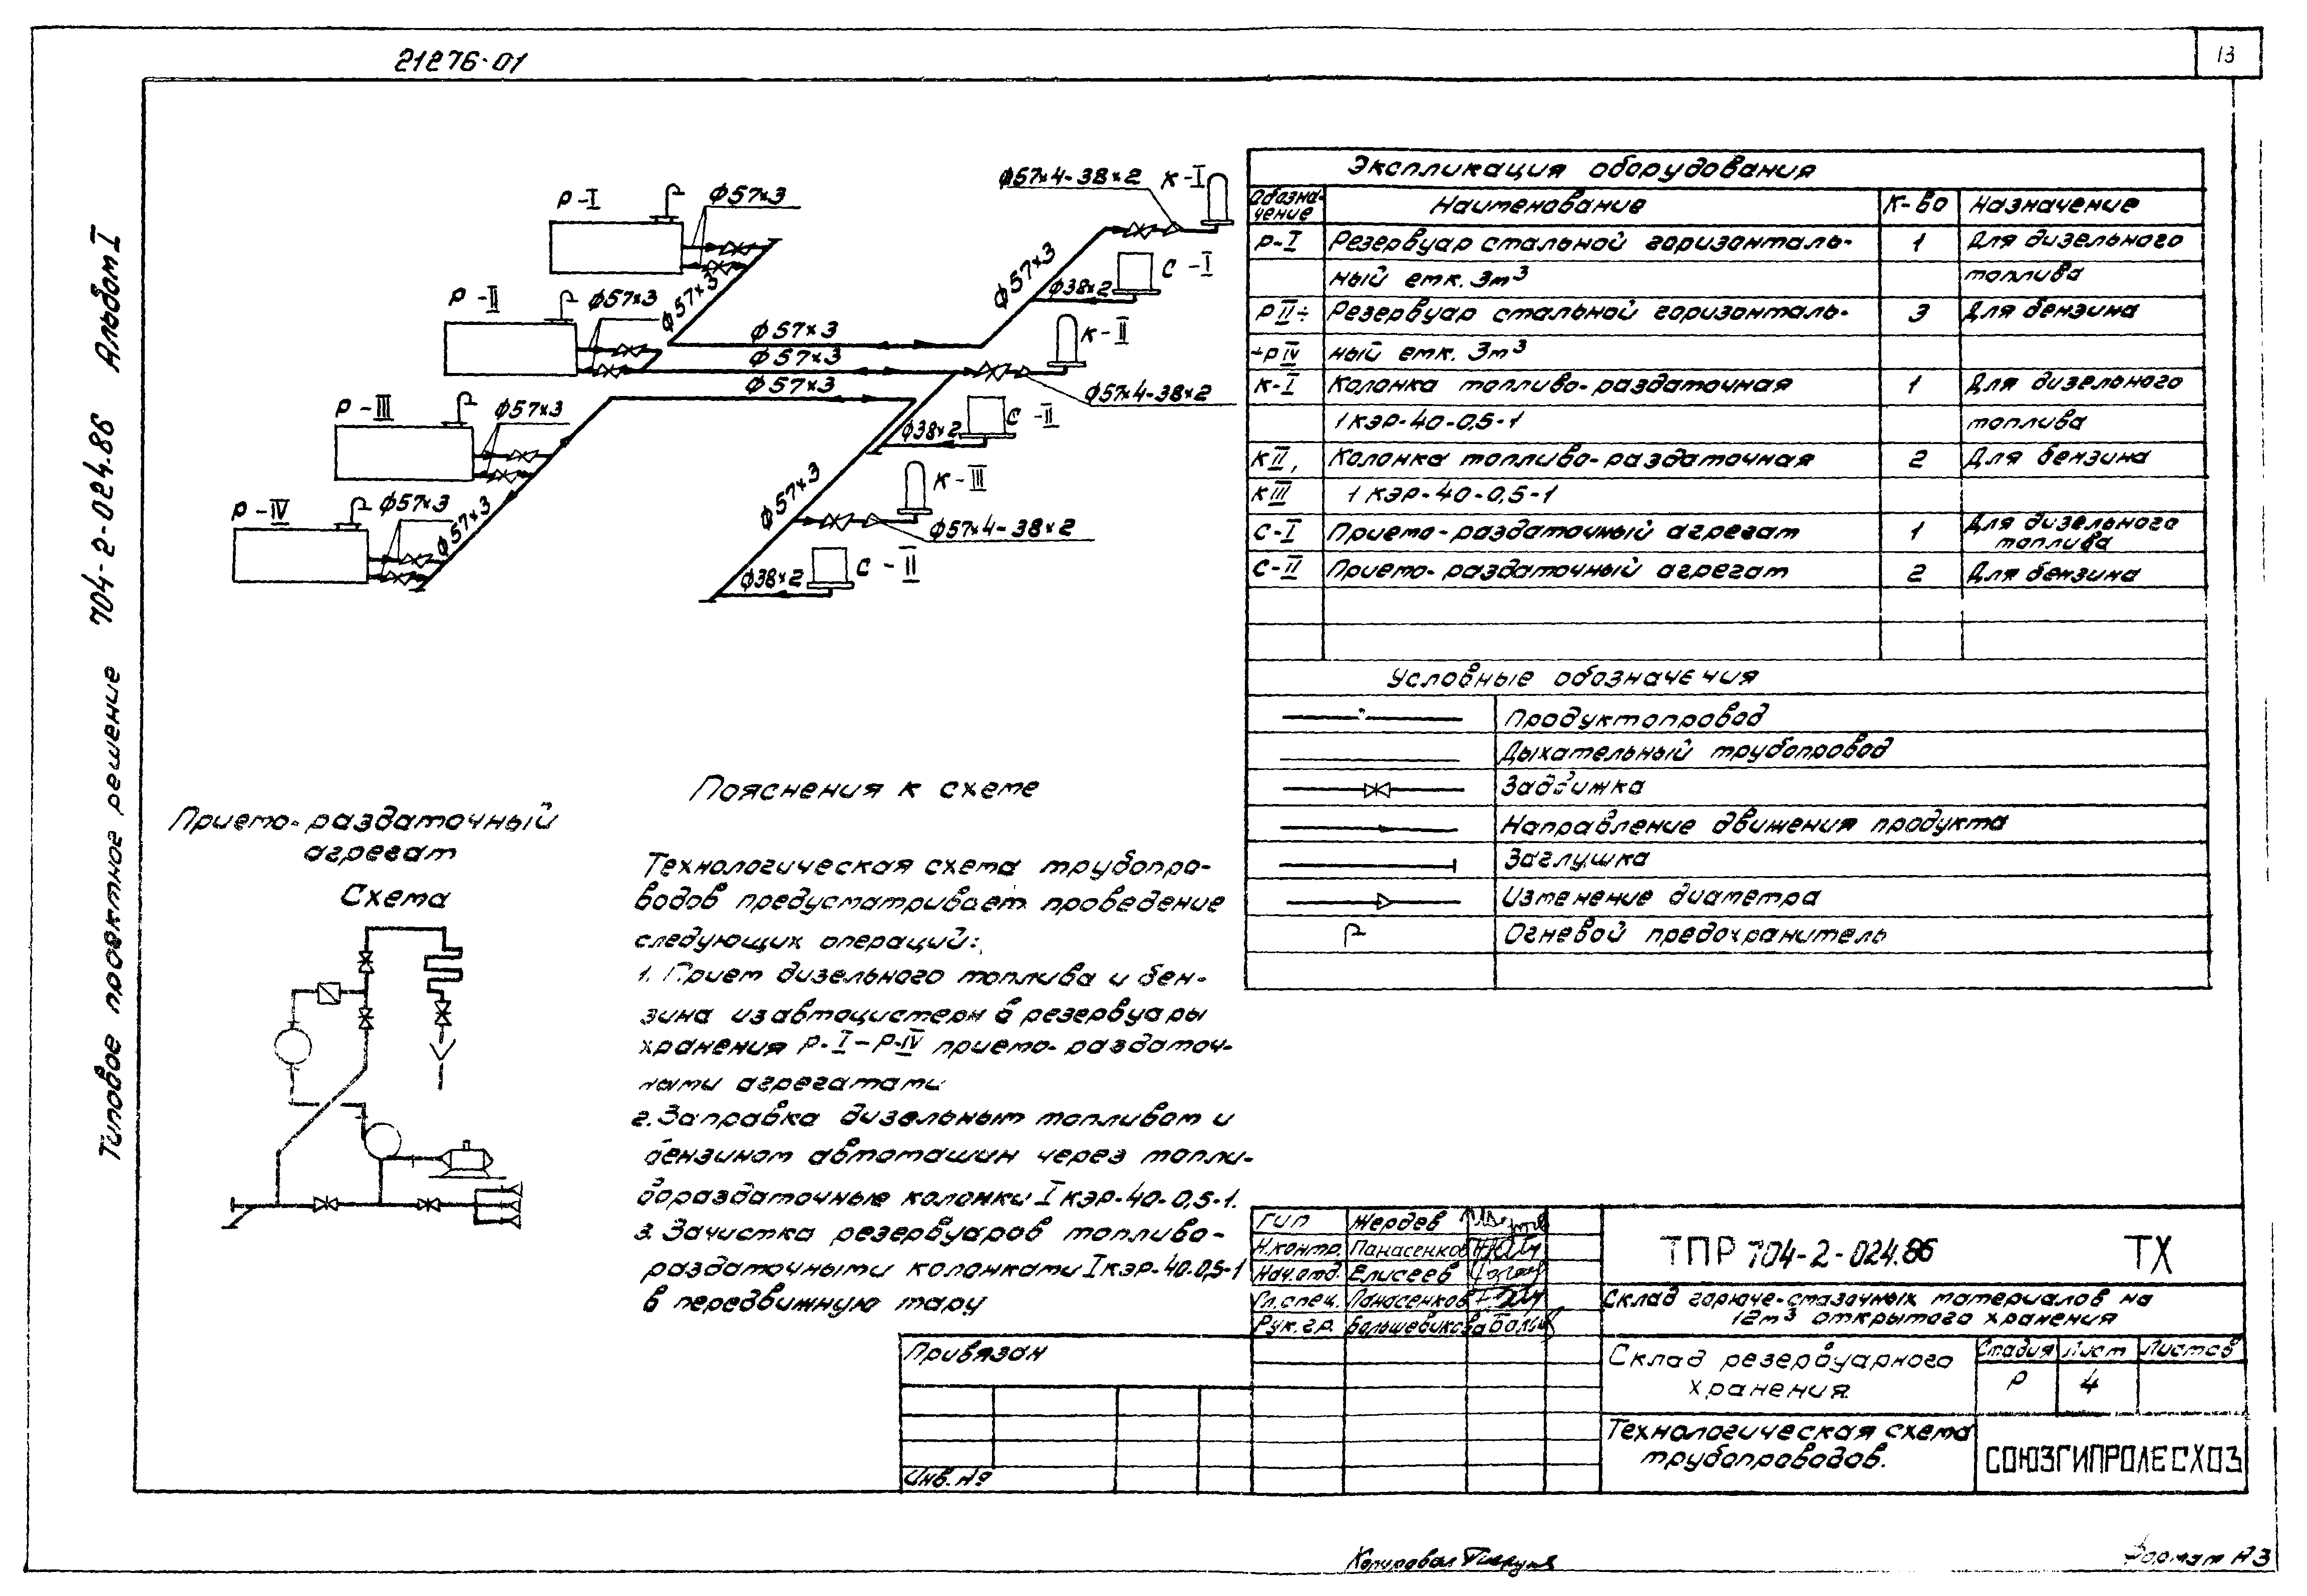 21276-01
13
Типовое проектное решение 704-2-024.86 Альбом I
Р-I
ф57×3
ф57×3
Р-II
ф57×3
ф57×3
ф57×3
ф57×3
Р-III
ф57×3
Р-IV
ф57×3
ф57×3
ф57×4-38×2
К-I
ф57×3
С-I
ф38×2
К-II
ф57×4-38×2
С-II
ф38×2
К-III
ф57×3
ф57×4-38×2
С-II
ф38×2
Экспликация оборудования
Обозна-
чение
Наименование
К-во
Назначение
Р-I Резервуар стальной горизонталь- 1 Для дизельного
ный емк. 3м³ топлива
РII÷ Резервуар стальной горизонталь- 3 Для бензина
÷РIV ный емк. 3м³
К-I Колонка топливо-раздаточная 1 Для дизельного
1КЭР-40-0,5-1 топлива
КII, Колонка топливо-раздаточная 2 Для бензина
КIII 1КЭР-40-0,5-1
С-I Приемо-раздаточный агрегат 1 Для дизельного
топлива
С-II Приемо-раздаточный агрегат 2 Для бензина
Условные обозначения
Продуктопровод
Дыхательный трубопровод
Задвижка
Направление движения продукта
Заглушка
Изменение диаметра
Огневой предохранитель
Приемо-раздаточный
агрегат
Схема
Пояснения к схеме
Технологическая схема трубопро-
водов предусматривает проведение
следующих операций:
1. Прием дизельного топлива и бен-
зина из автоцистерн в резервуары
хранения Р-I-Р-IV приемо-раздаточ-
ными агрегатами
2. Заправка дизельным топливом и
бензином автомашин через топли-
вораздаточные колонки IКЭР-40-0,5-1.
3. Зачистка резервуаров топливо-
раздаточными колонками IКЭР-40-0,5-1
в передвижную тару
Привязан
Инв.№
ГИП Жердев
Н.контр. Панасенков
Нач.отд. Елисеев
Гл.спец. Панасенков
Рук.гр. Большевикова
ТПР 704-2-024.86 ТХ
Склад горюче-смазочных материалов на
12м³ открытого хранения
Склад резервуарного
хранения.
Стадия Лист Листов
Р 4
Технологическая схема
трубопроводов.
СОЮЗГИПРОЛЕСХОЗ
Копировал
Формат А3